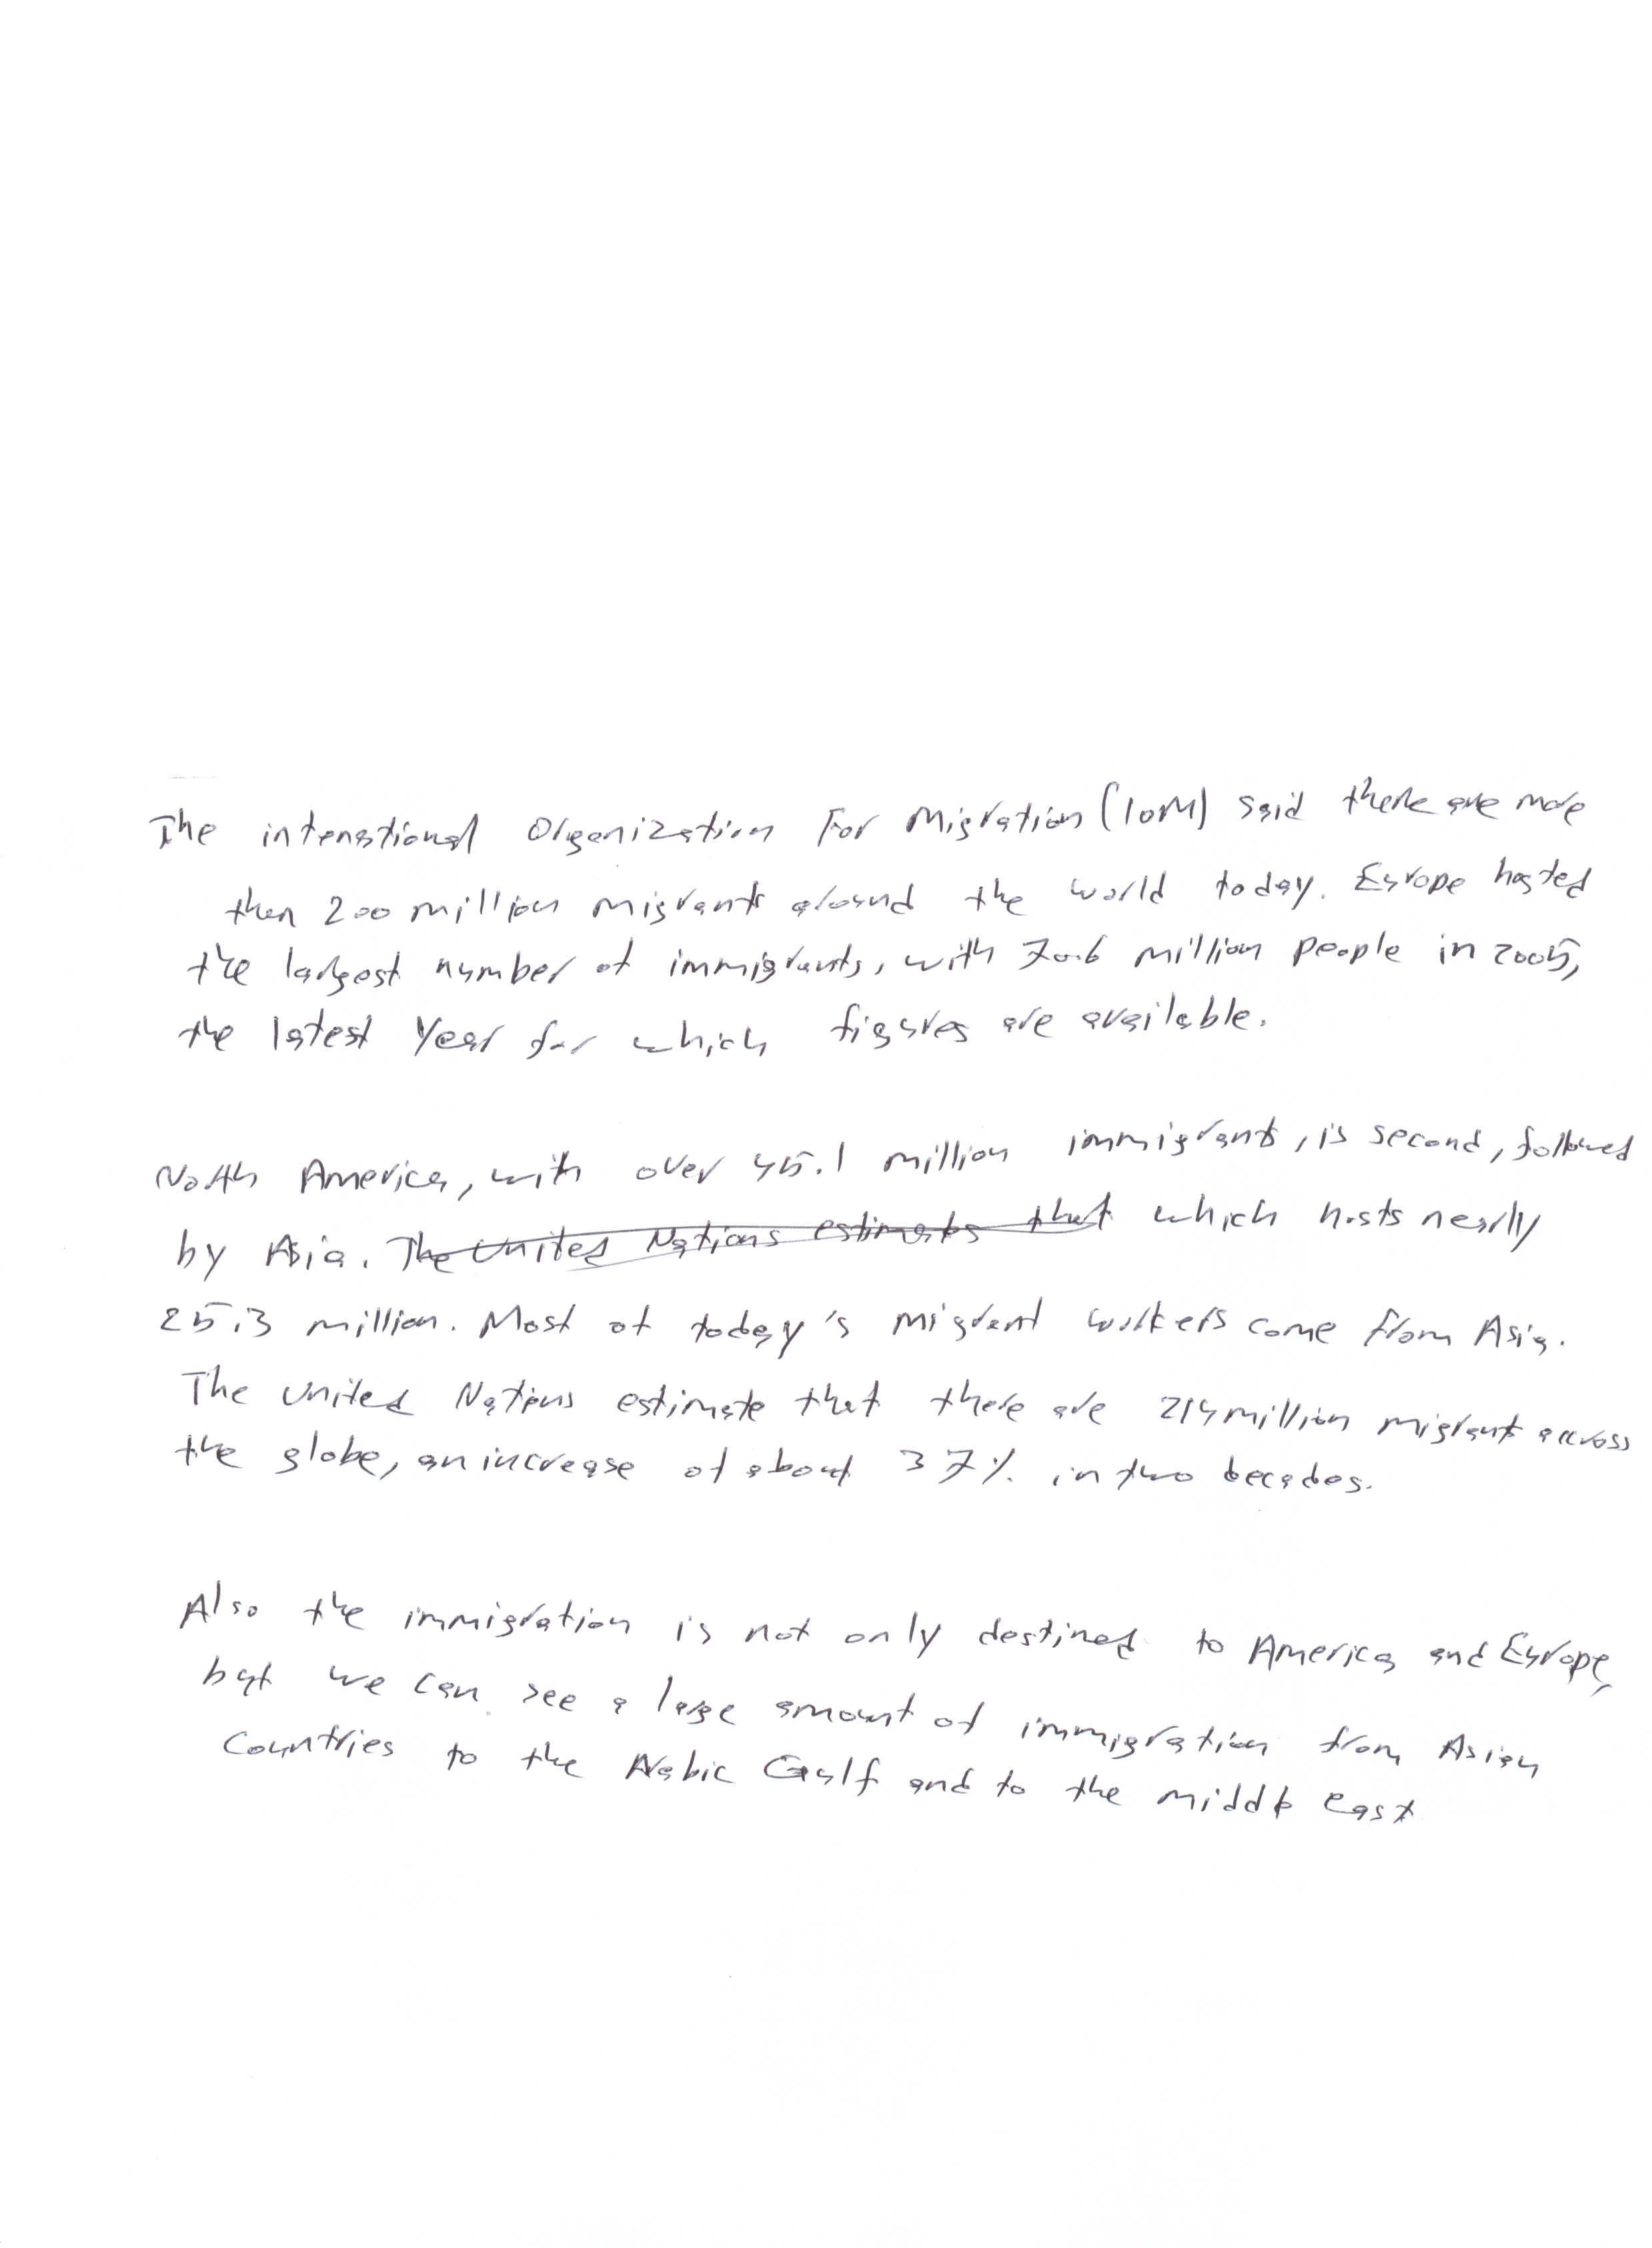 The intenational Organization For Migration (IOM) said there are more
then 200 million migrants around the world today. Europe hosted
the largest number of immigrants, with 70.6 million people in 2005,
the latest Year for which figures are available.
North America, with over 45.1 million immigrants, is second, followed
by Asia. The United Nations estimates that which hosts nearly
25.3 million. Most of today's migrant workers come from Asia.
The United Nations estimate that there are 214 million migrant accross
the globe, an increase of about 37% in two decades.
Also the immigration is not only destined to America and Europe,
but we can see a large amount of immigration from Asian
Countries to the Arabic Gulf and to the middle east